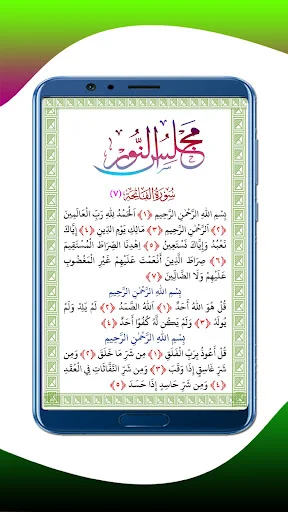 مجلس النُّور
سُورَةُ الفَاتِحَة (٧)
بِسْمِ اللهِ الرَّحْمٰنِ الرَّحِيمِ ﴿١﴾ اَلْحَمْدُ لِلّٰهِ رَبِّ الْعَالَمِينَ
﴿٢﴾ اَلرَّحْمٰنِ الرَّحِيمِ ﴿٣﴾ مَالِكِ يَوْمِ الدِّينِ ﴿٤﴾ إِيَّاكَ
نَعْبُدُ وَإِيَّاكَ نَسْتَعِينُ ﴿٥﴾ إِهْدِنَا الصِّرَاطَ الْمُسْتَقِيمَ
﴿٦﴾ صِرَاطَ الَّذِينَ أَنْعَمْتَ عَلَيْهِمْ غَيْرِ الْمَغْضُوبِ
عَلَيْهِمْ وَلَا الضَّالِّينَ ﴿٧﴾
بِسْمِ اللهِ الرَّحْمٰنِ الرَّحِيمِ
قُلْ هُوَ اللهُ أَحَدٌ ﴿١﴾ اَللهُ الصَّمَدُ ﴿٢﴾ لَمْ يَلِدْ وَلَمْ
يُولَدْ ﴿٣﴾ وَلَمْ يَكُنْ لَهُ كُفُوًا أَحَدٌ ﴿٤﴾
بِسْمِ اللهِ الرَّحْمٰنِ الرَّحِيمِ
قُلْ أَعُوذُ بِرَبِّ الْفَلَقِ ﴿١﴾ مِنْ شَرِّ مَا خَلَقَ ﴿٢﴾ وَمِنْ
شَرِّ غَاسِقٍ إِذَا وَقَبَ ﴿٣﴾ وَمِنْ شَرِّ النَّفَّاثَاتِ فِي الْعُقَدِ
﴿٤﴾ وَمِنْ شَرِّ حَاسِدٍ إِذَا حَسَدَ ﴿٥﴾